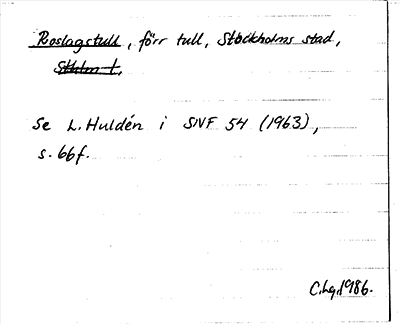 Roslagstull, förr tull, Stockholms stad,
Sthlm t.
Se L. Huldén i SNF 54 (1963),
s. 66f.
C.hg. 1986.